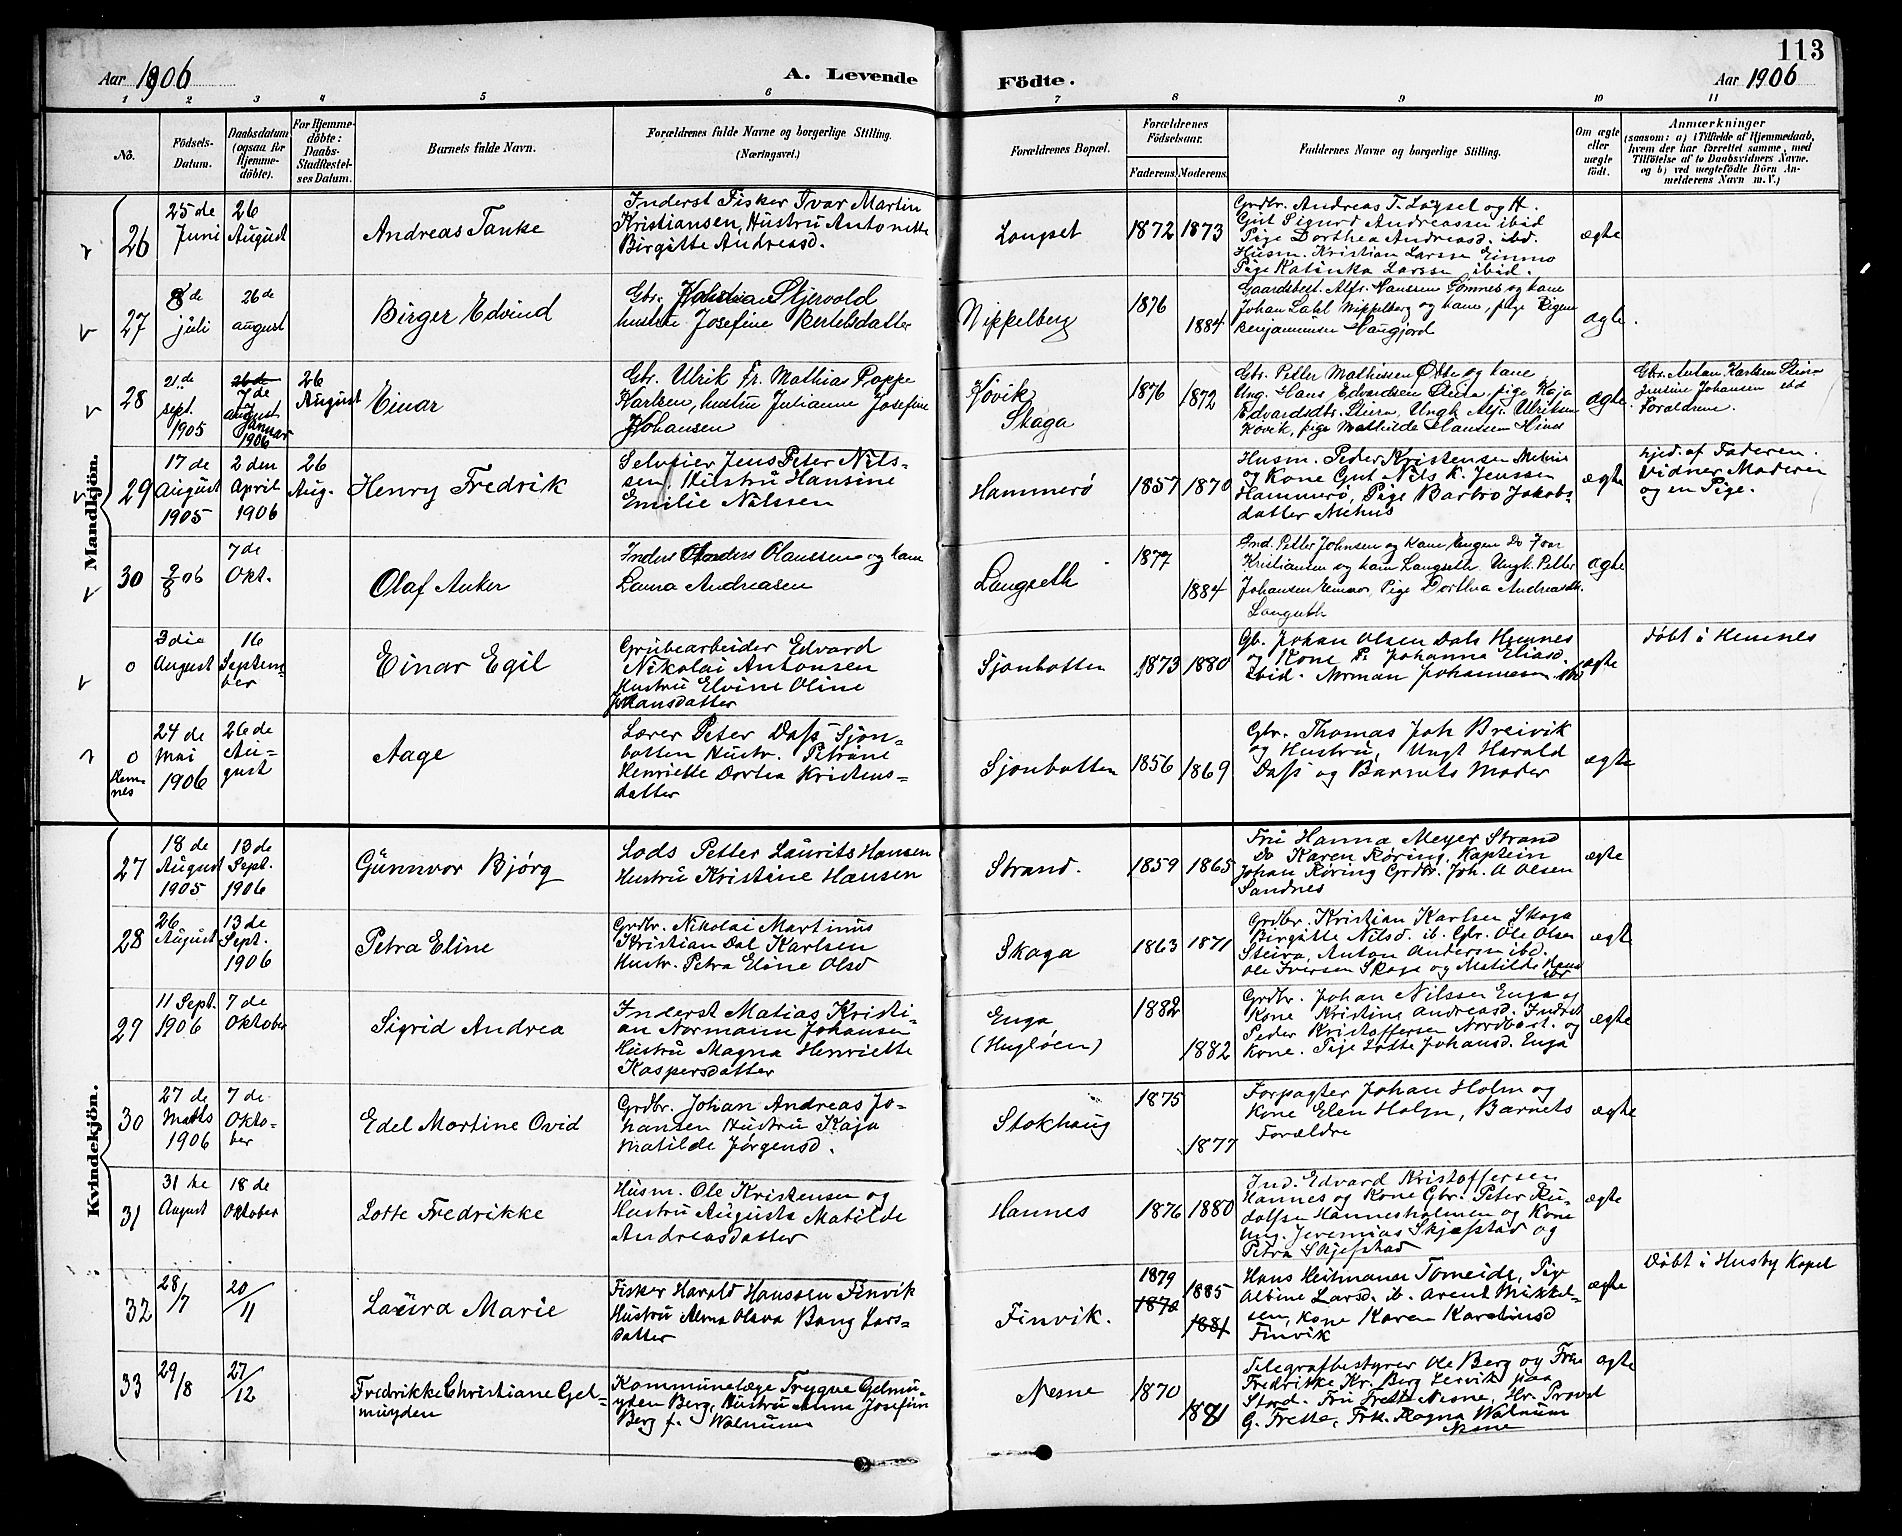 113
Aar 1906
A. Levende
Fødte.
Aar 1906
1 2 3 4 5 6 7 8 9 10 11
No.
Fødsels-
Datum.
Daabsdatum
(ogsaa for
Hjemme-
døbte).
For Hjemme-
døbte:
Daabs-
Stadfæstel-
ses Datum.
Barnets fulde Navn.
Forældrenes fulde Navne og borgerlige Stilling.
(Næringsvei.)
Forældrenes Bopæl.
Forældrenes
Fødselsaar.
Faderens. Moderens.
Faddernes Navne og borgerlige Stilling.
Om ægte
eller
uægte
født.
Anmærkninger
(saasom: a) i Tilfælde af Hjemmedaab,
hvem der har forrettet samme, med
Tilføielse af to Daabsvidners Navne.
og b) ved uægtefødte Børn An-
melderens Navn m. V.)
Mandkjön.
26
25 de
Juni
26
August
Andreas Tanke
Inderst Fisker Ivar Martin
Kristiansen, Hustru Antonette
Birgitte Andreasd.
Langset
1872 1873
Grdbr. Andreas T. Langset og H.
Gut Sigurd Andreassen ibid
Pige Dorthea Andreasd. ibd.
Husm. Kristian Larssen Einmo
Pige Katinka Larssen ibid.
ægte
27
8 de
juli
26de
august
Birger Edvind
Gbr. Stjervold
hustru Josefine Bertelsdatter
Nippelberg
1876
1884
Gaardsbest. Alfr. Hanssen Sømnes og kone
Johan Dahl Nippelberg og kone, pige
Benjaminsen Haugjord
ægte
28
21de
sept.
1905
26de
7de
august
Januar
1906
26
August
Einar
Gbr. Ulrik Fr. Mathias Poppe
Karlsen, hustru Julianne Josefine
Johansen
Høvik
Skaga
1876 1872
Gbr. Petter Mathissen og kone
Ung. Hans Edvardsen Steira pige Kaja
Edvardsdtr. Steira, Ungk. Alfr. Ulriksen
Høvik, pige Mathilde Hanssen
ægte
Gbr. Anton Karlsen Steira
Jensine Johansen ibd
Forældrene.
29
17 de
August
1905
2 den
April
1906
26
Aug.
Henry Fredrik
Selveier Jens Peter Nils-
sen, Hustru Hansine
Emilie Nilssen
Hammerø
1857 1870
Husm. Peder Kristensen
og Kone Gut Nils K. Jenssen
Hammerø, Pige Barbro Jakobs-
datter
ægte
Hjed. af Faderen.
Vidner Moderen
og en Pige.
30
2/8 06
7 de
Okt.
Olaf Anker
Inders Anders Olaussen og kone
Laura Andreasen
Langseth
1877
1884
Ind. Petter Johnsen og Kone Engen Do Ivar
Kristiansen og kone Langseth. Ungk. Petter
Johansen Einmo, Pige Dorthea Andreasdtr.
Langseth
ægte
0
3die
August
16
Septem-
ber
Einar Egil
Grubearbeider Edvard
Nikolai Antonsen
Hustru Elvine Oline
Johansdatter
Sjonbotten
1873 1880
Gb. Johan Olsen Dals Hemnes
og Kone P. Johanna Eliasd.
ibid. Norman Johannesen ibd
ægte
Døbt i Hemnes
0
Hem-
nes
24 de
Mai
1906
26 de
Au-
gust
Aage
Lærer Peter Dass Sjon-
botten Hustr. Petrine
Henriette Dortea Kristens-
datter
Sjonbotten
1856 1869
Gbr. Thomas Joh Breivik
og Hustru, Ungt Harald
Dass og Barnets Moder
ægte
Kvindekjön.
27
18 de
August
1905
13 de
Sept.
1906
Gunnvor Bjørg
Lods Petter Laurits Hansen
Hustru Kristine Hansen
Strand.
1859 1865
Fru Hanna Meyer Strand
Do Karen Røring, Kaptein
Johan Røring Grdbr. Joh. A Olsen
Sandnes
ægte
28
26
August
13 de
Sept.
1906
Petra Eline
Grdbr. Nikolai Martinus
Kristian Dal Karlsen
Hustr. Petra Eline Olsd
Skaga
1863 1871
Grdbr. Kristian Karlsen Skaga
Birgitte Nilsd. ib. Gbr. Ole Olsen
Steira, Anton Andersen ibd.
Ole Iversen Skaga og Matilde Hans
dtr
ægte
29
11 Sept.
1906
7 de
Oktober
Sigrid Andrea
Inderst Matias Kristi-
an Normann Johansen
Hustru Magna Henriette
Kaspersdatter
Enga
(Hugløen)
1882
1882
Grdbr. Johan Nilssen Enga og
Kone Kristine Andreasd. Indrst
Peder Kristoffersen Nordbost. og
Kone. Pige Lotte Johansd. Enga
ægte
30
27 de
Marts
1906
7 de
Okto-
ber
Edel Martine Ovid
Grdbr. Johan Andreas Jo-
hansen Hustru Kaja
Matilde Jørgensd.
Stokhaug
1875
1877
Forpagter Johan Holm og
Kone Elen Holm, Barnets
Forældre
ægte
31
31 te
August
18 de
Oktober
Lotte Fredrikke
Husm. Ole Kristensen og
Hustru Augusta Matilde
Andreasdatter
Hannes
1876 1880
Ind. Edvard Kristoffersen
Hannes og Kone Gbr. Peter Ru-
dolfsen Hannesholmen og Kone
Ung. Jeremias Skjefstad og
Petra Skjefstad
ægte
32
28/7
20/11
Laura Marie
Fisker Harald Hanssen Finvik
Hustru Alma Olava Bang Lars-
datter
Finvik.
1879
1870
1885
1881
Hans Heitmanen Tomeide, Pige
Albine Larsd. ib. Arent Mikkel-
sen, kone Karen Karolinusd
Finvik
ægte
Døbt i Husby Kapel
33
29/8
27/12
Fredrikke Christiane Gel-
muyden
Kommunelæge Trygve Gelmu-
yden Berg, Hustru Anna Josefine
Berg f. Walnum
Nesne
1870
1881
Telegrafbestyrer Ole Berg og Frue
Fredrikke Kr. Berg Lervik paa
Stord. Fru Frette Nesne, Hr. Provst
G. Frette, Frk. Ragna Walnum
Nesne
ægte